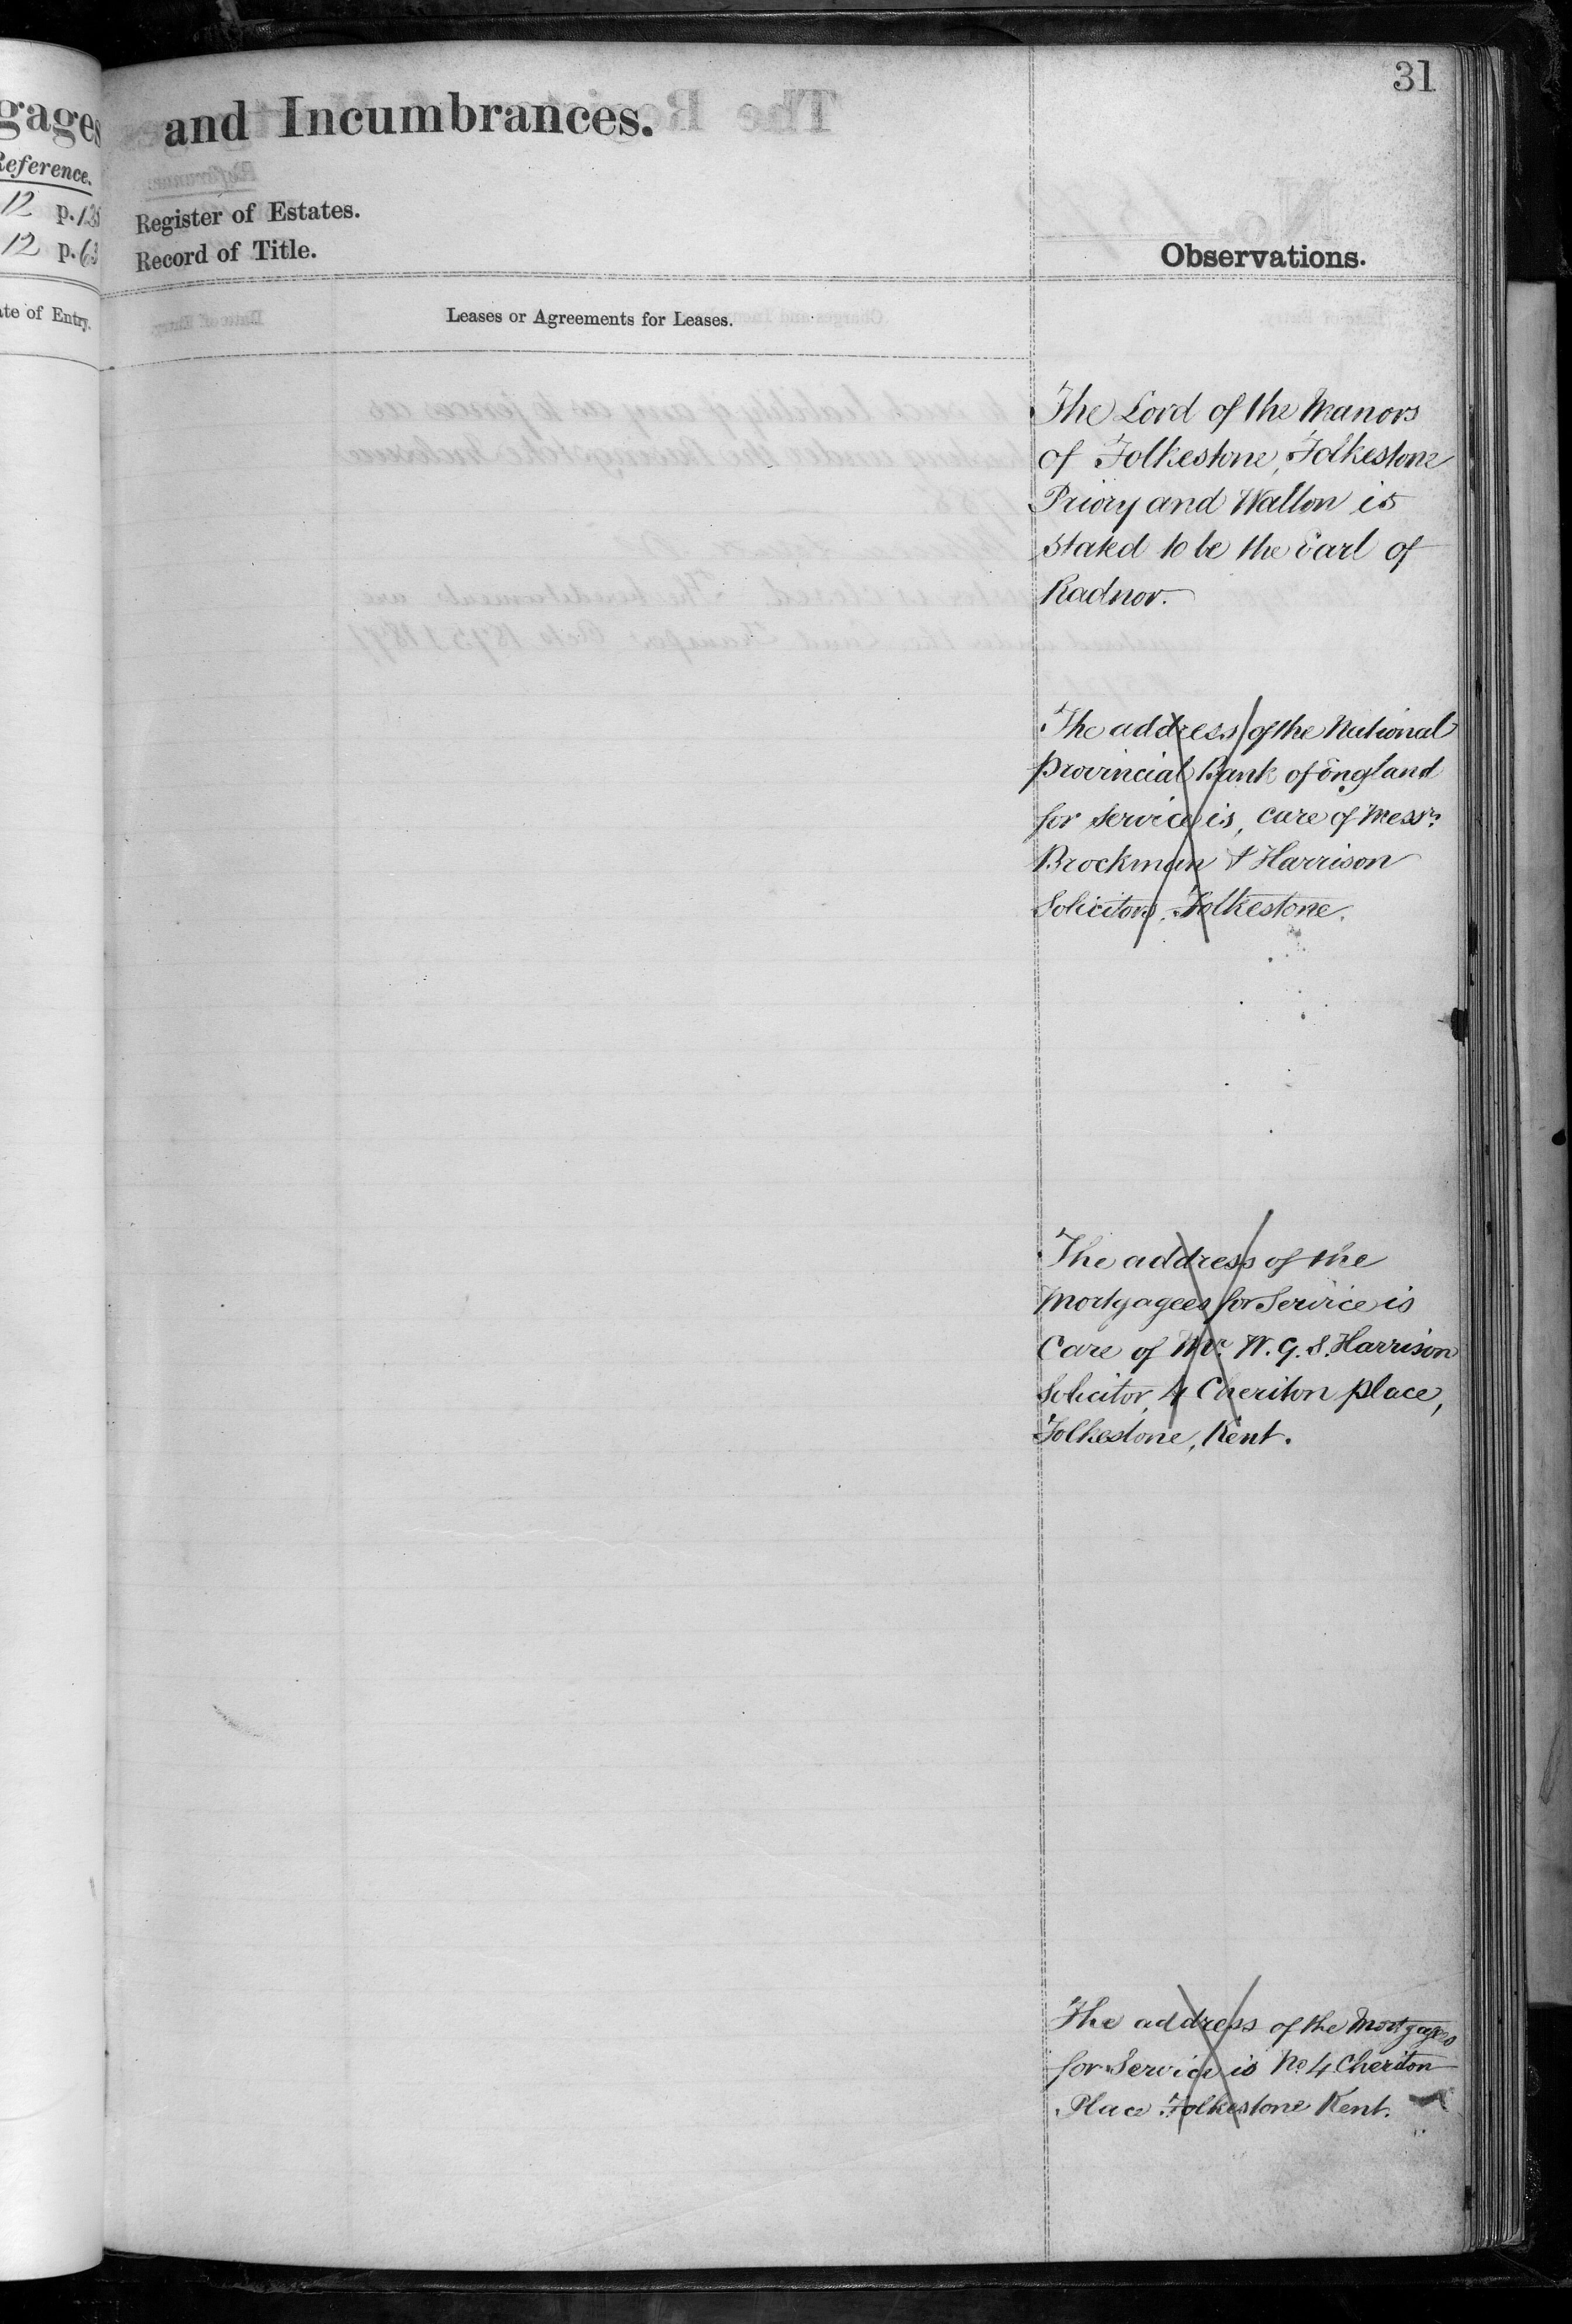 31
gages
and Incumbrances.
Reference.
12 p.
Register of Estates.
12 p.
Record of Title.
Observations.
ate of Entry.
Leases or Agreements for Leases.
The Lord of the Manors
of Folkestone, Folkestone
Priory and Walton is
stated to be the Earl of
Radnor.
The address of the National
Provincial Bank of England
for service is, care of Messrs
Brockman & Harrison
Solicitors, Folkestone.
The address of the
Mortgagees for Service is
Care of Mr. W. G. S. Harrison
Solicitor, 4 Cheriton place,
Folkestone, Kent.
The address of the Mortgagees
for Service is No 4 Cheriton
Place Folkestone Kent.